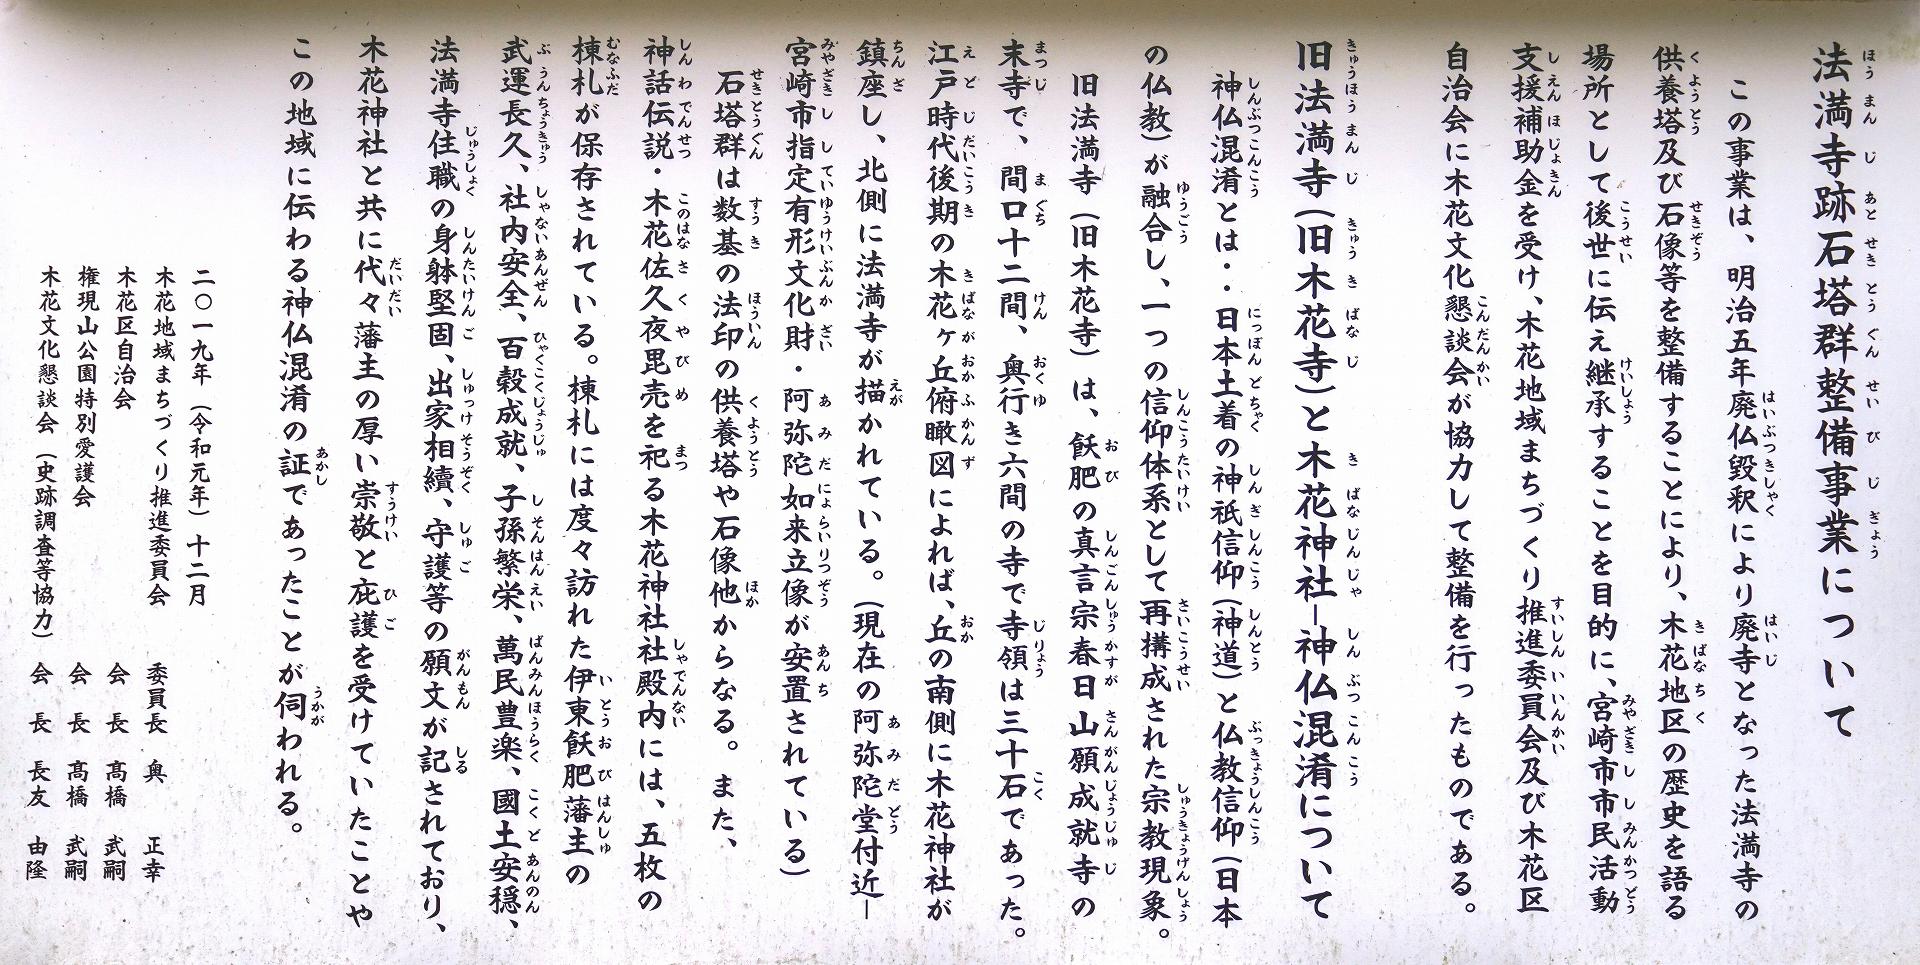 法満寺跡石塔群整備事業について
この事業は、明治五年廃仏毀釈により廃寺となった法満寺の
供養塔及び石像等を整備することにより、木花地区の歴史を語る
場所として後世に伝え継承することを目的に、宮崎市市民活動
支援補助金を受け、木花地域まちづくり推進委員会及び木花区
自治会に木花文化懇談会が協力して整備を行ったものである。
旧法満寺(旧木花寺)と木花神社―神仏混淆について
神仏混淆とは・・日本土着の神祇信仰(神道)と仏教信仰(日本
の仏教)が融合し、一つの信仰体系として再構成された宗教現象。
旧法満寺(旧木花寺)は、飫肥の真言宗春日山願成就寺の
末寺で、間口十二間、奥行き六間の寺で寺領は三十石であった。
江戸時代後期の木花ヶ丘俯瞰図によれば、丘の南側に木花神社が
鎮座し、北側に法満寺が描かれている。(現在の阿弥陀堂付近―
宮崎市指定有形文化財・阿弥陀如来立像が安置されている)
石塔群は数基の法印の供養塔や石像他からなる。また、
神話伝説・木花佐久夜毘売を祀る木花神社社殿内には、五枚の
棟札が保存されている。棟札には度々訪れた伊東飫肥藩主の
武運長久、社内安全、百穀成就、子孫繁栄、萬民豊楽、國土安穏、
法満寺住職の身躰堅固、出家相續、守護等の願文が記されており、
木花神社と共に代々藩主の厚い崇敬と庇護を受けていたことや
この地域に伝わる神仏混淆の証であったことが伺われる。
二〇一九年(令和元年)十二月
木花地域まちづくり推進委員会 委員長 奥 正幸
木花区自治会 会長 髙橋 武嗣
権現山公園特別愛護会 会長 髙橋 武嗣
木花文化懇談会(史跡調査等協力) 会長 長友 由隆